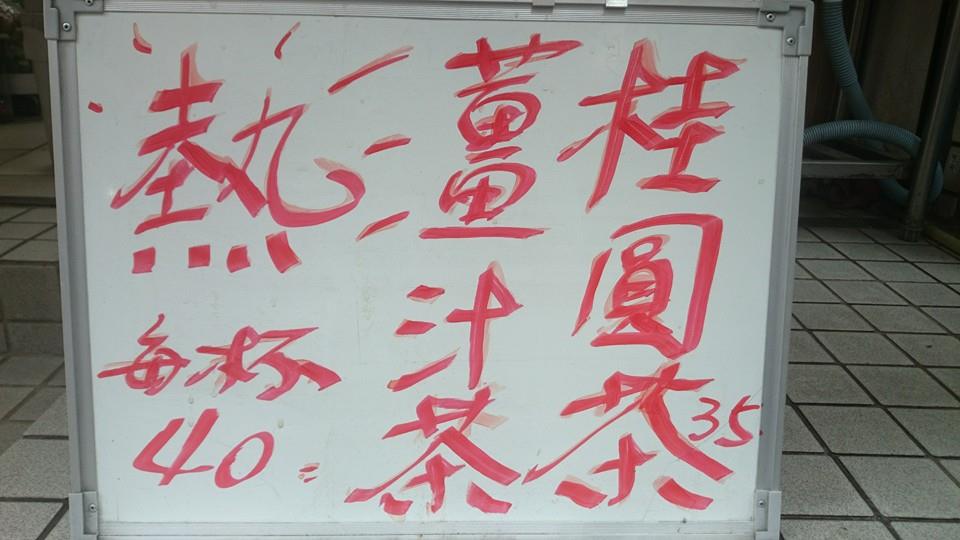 桂圓茶35.
薑汁茶
熱
每杯
40